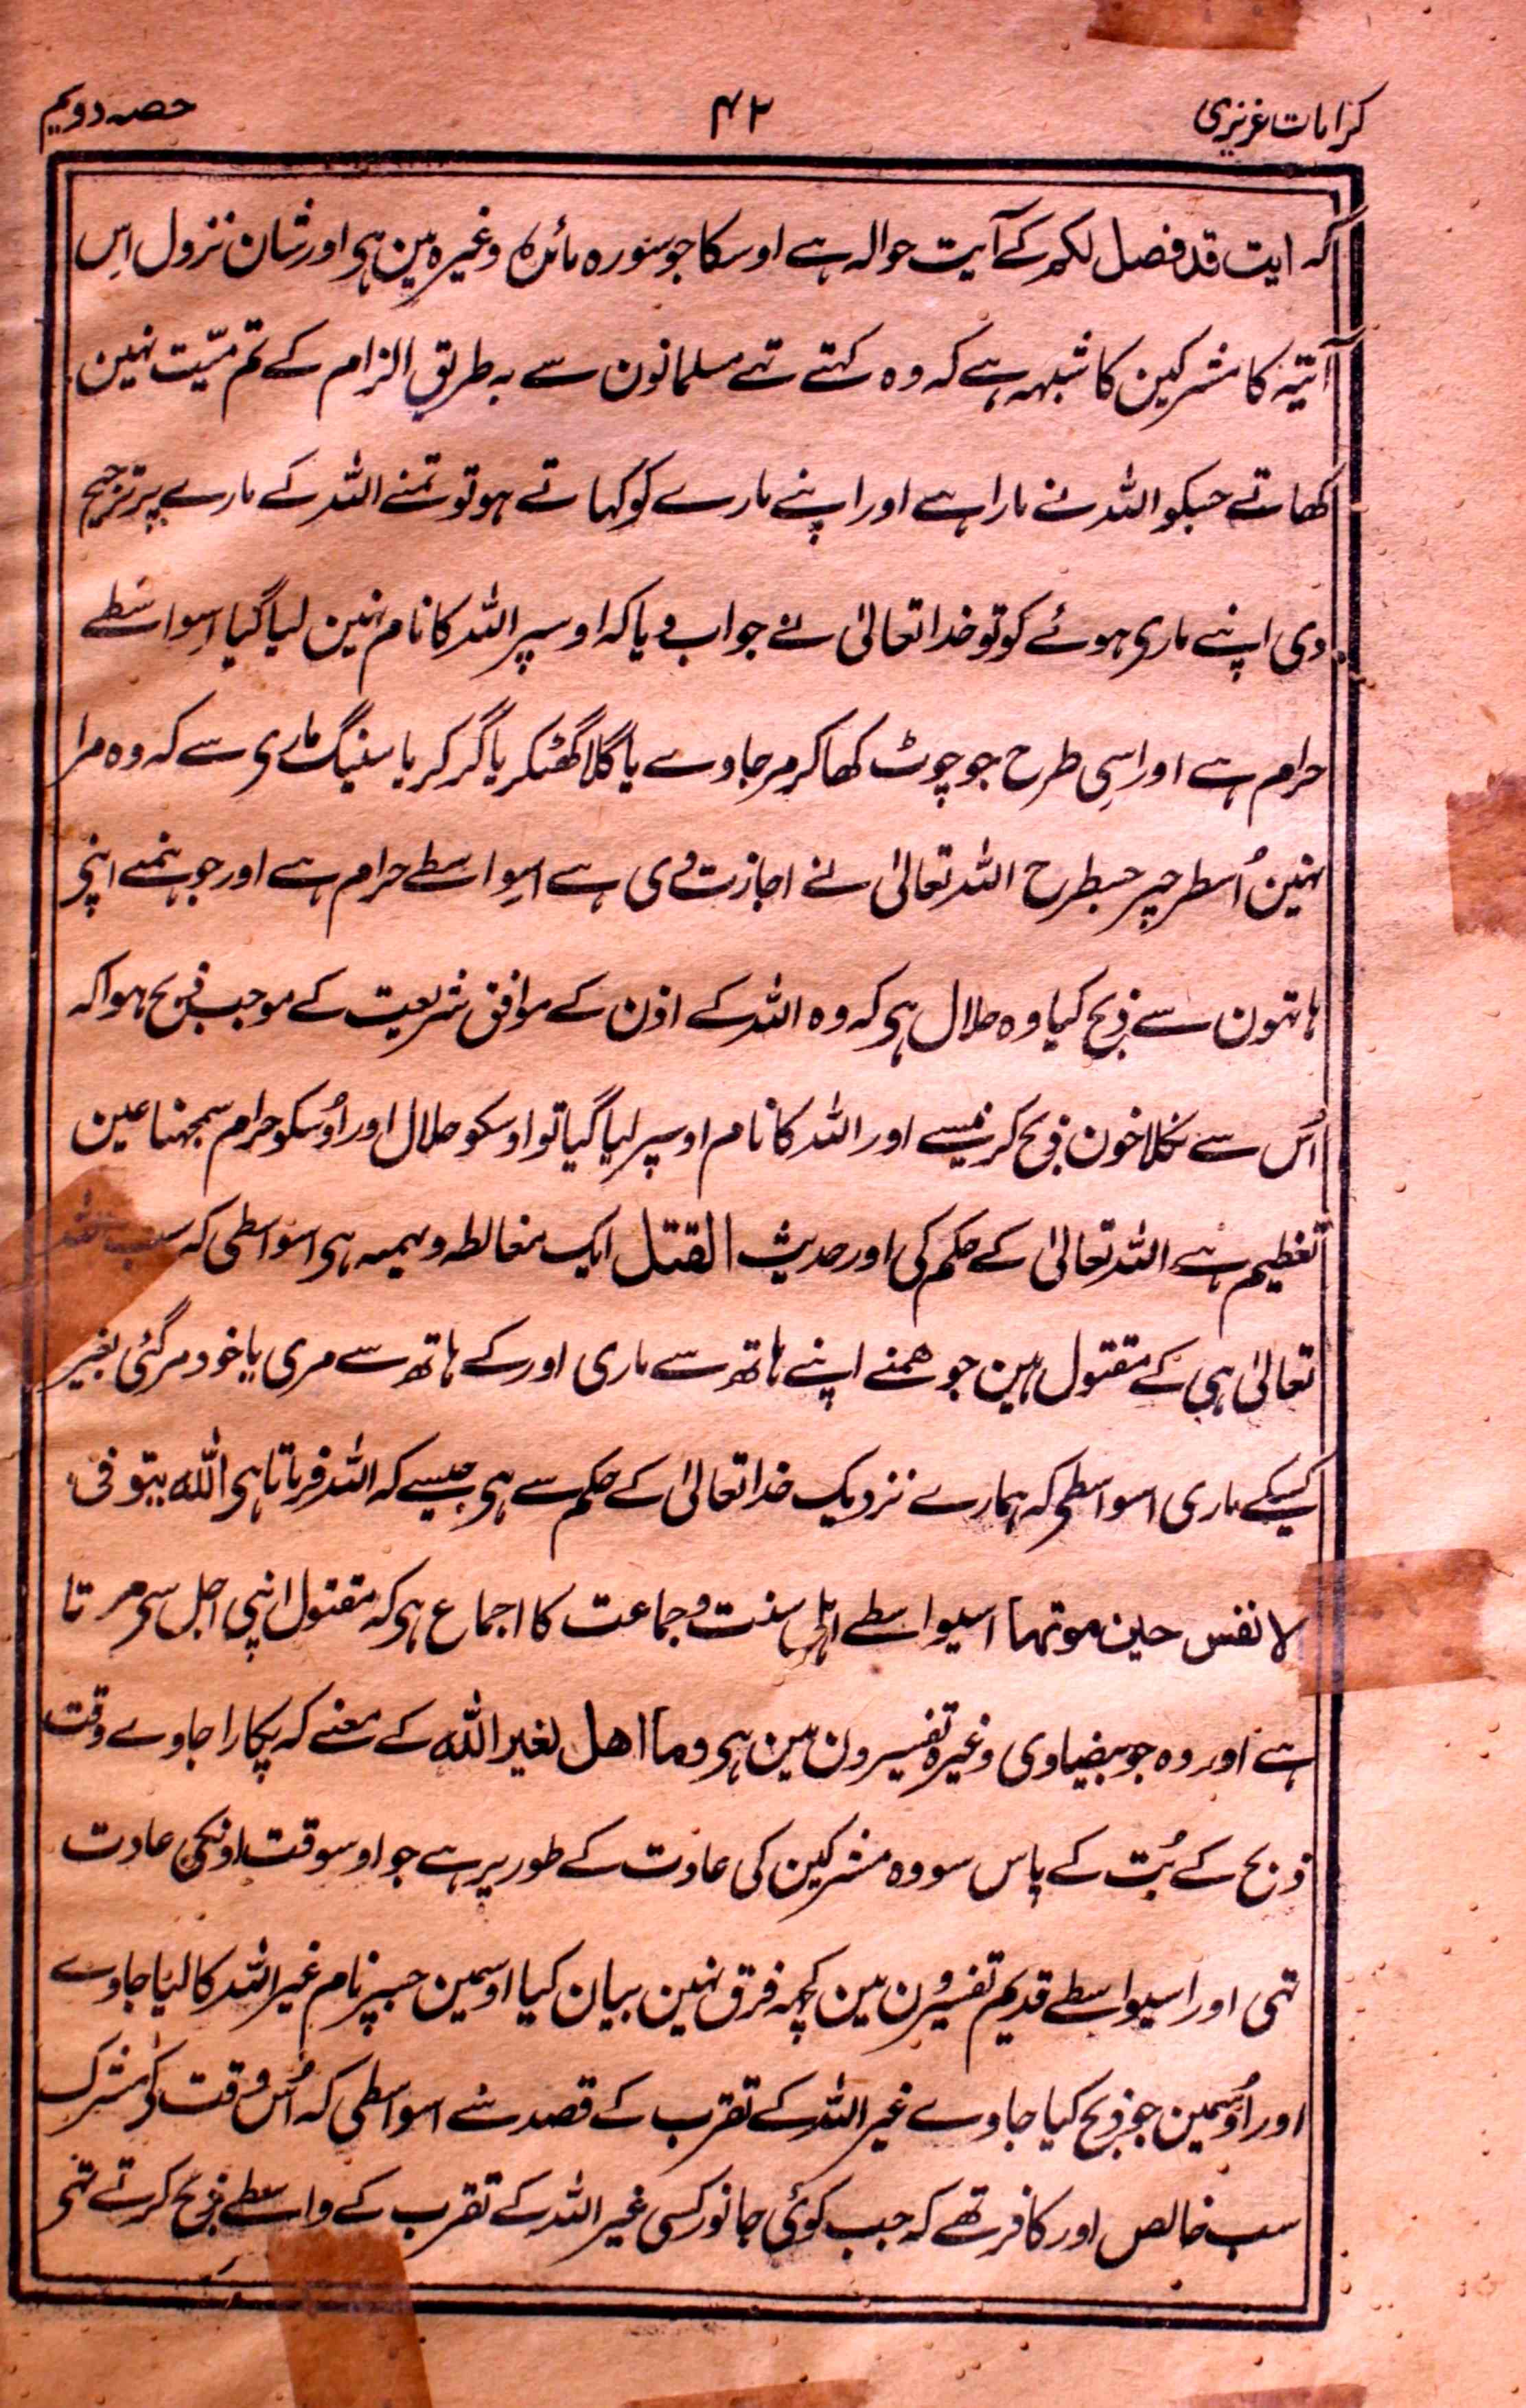 کرامات عزیزی
۴۲
حصہ دویم
کہ ایت قد فصل لکم کے آیت حوالہ ہے اوسکا جو سورہ مائدہ وغیرہ مین ہی اور شان نزول اِس
آیتہ کا مشرکین کا شبہہ ہے کہ وہ کہتے تہے مسلمانون سے بہ طریق الزام کے تم میّت نہین
کھاتے جسکو اللہ نے مارا ہے اور اپنے مارے کو کہاتے ہو تو تمنے اللہ کے مارے پر ترجیح
دی اپنے ماری ہوئے کو تو خدا تعالیٰ نے جواب دیا کہ اوسپر اللہ کا نام نہین لیا گیا اسواسطے
حرام ہے اور اسی طرح جو چوٹ کھا کر مر جاوے یا گلا گھٹکر یا گر کر یا سینگ ماری سے کہ وہ مرا
نہین اُسطرحپر جسطرح اللہ تعالیٰ نے اجازت دی ہے اسِواسطے حرام ہے اور جو ہمنے اپنی
ہاتہون سے ذبح کیا وہ حلال ہی کہ وہ اللہ کے اذن کے موافق شریعت کے موجب ذبح ہوا کہ
اُس سے نکلا خون ذبح کرنیسے اور اللہ کا نام اوسپر لیا گیا تو اوسکو حلال اور اُوسکو حرام سمجہنا عین
تعظیم ہے اللہ تعالیٰ کے حکم کی اور حدیث القتل ایک مغالطہ وہمیہ ہی اسواسطی کہ سب
تعالیٰ ہی کے مقتول ہین جو ہمنے اپنے ہاتھ سے ماری اور کے ہاتھ سے مری یا خود مر گئی بغیر
کیسکے ماری اسواسطی کہ ہمارے نزدیک خدا تعالیٰ کے حکم سے ہی جیسے کہ اللہ فرماتا ہی اللہ یتوفی
لانفس حین موتہا اسیواسطے اہل سنت و جماعت کا اجماع ہی کہ مقتول اپنی اجل سی مرتا
ہے اور وہ جو بیضاوی وغیرہ تفسیرون مین ہی وما اھل لغیر اللہ کے معنے کہ پکارا جاوے وقت
ذبح کے بُت کے پاس سو وہ مشرکین کی عادت کے طور پر ہے جو اوسوقت اونکی عادت
تہی اور اسیواسطے قدیم تفسیرون مین کچہہ فرق نہین بیان کیا اوسمین جسپر نام غیر اللہ کا لیا جاوے
اور اُوسمین جو ذبح کیا جاوے غیر اللہ کے تقرب کے قصد سے اسواسطی کہ اُس وقت کی مشرک
سب خالص اور کافر تھے کہ جب کوئی جانور کسی غیر اللہ کے تقرب کے واسطے ذبح کرتے تہی